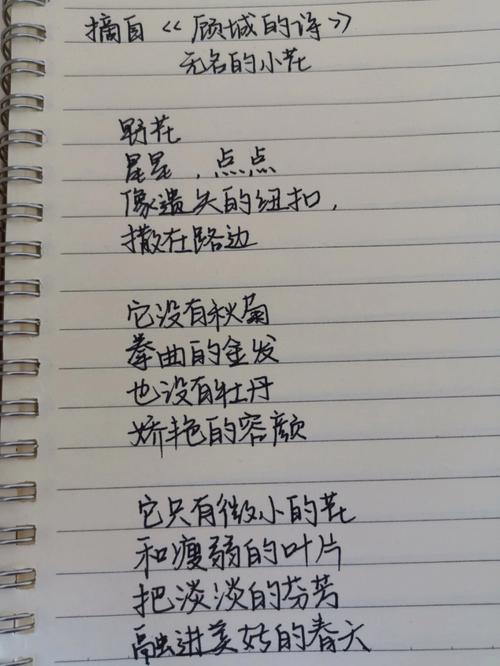 摘自《顾城的诗》
无名的小花
野花
星星,点点
像遗失的纽扣,
撒在路边
它没有秋菊
拳曲的金发
也没有牡丹
娇艳的容颜
它只有微小的花
和瘦弱的叶片
把淡淡的芬芳
融进美好的春天